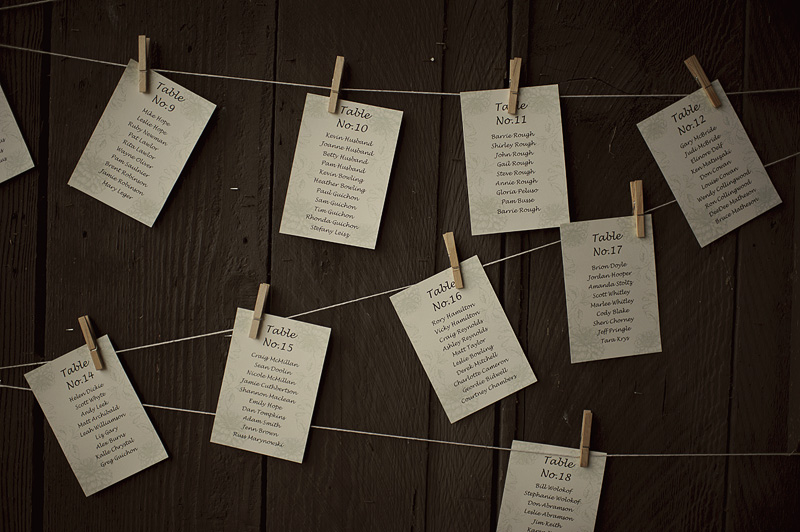 Table
No.9
Mike Hope
Leslie Hope
Ruby Newman
Pat Lawlor
Rita Lawlor
Wayne Oliver
Pam Saulnier
Brent Robinson
Jamie Robinson
Mary Leger
Table
No.10
Kevin Husband
Joanne Husband
Betty Husband
Pam Husband
Kevin Bowling
Heather Bowling
Paul Guichon
Sam Guichon
Tim Guichon
Rhonda Guichon
Stefany Leisz
Table
No.11
Barrie Rough
Shirley Rough
John Rough
Gail Rough
Steve Rough
Annie Rough
Gloria Peluso
Pam Busse
Barrie Rough
Table
No.12
Gary McBride
Judi McBride
Elinore Delf
Ken Matsuzaki
Don Cowan
Louise Cowan
Wendy Collingwood
Ron Collingwood
DeeDee Matheson
Bruce Matheson
Table
No.14
Helen Dickie
Scott Whyte
Andy Leck
Matt Archibald
Leah Williamson
Liz Gary
Alex Burns
Kalle Chrystal
Greg Guichon
Table
No.15
Craig McMillan
Sean Doolin
Nicole McMillan
Jamie Cuthbertson
Shannon Maclean
Emily Hope
Dan Tompkins
Adam Smith
Jenn Brown
Russ Marynowski
Table
No.16
Rory Hamilton
Vicky Hamilton
Craig Reynolds
Ashley Reynolds
Matt Taylor
Leslie Bowling
Derek Mitchell
Charlotte Cameron
Geordie Bidwell
Courtney Chambers
Table
No.17
Brian Doyle
Jordan Hooper
Amanda Stoltz
Scott Whitley
Marlee Whitley
Cody Blake
Sheri Chorney
Jeff Pringle
Tara Krys
Table
No.18
Bill Wolokof
Stephanie Wolokof
Don Abramson
Leslie Abramson
Jim Keith